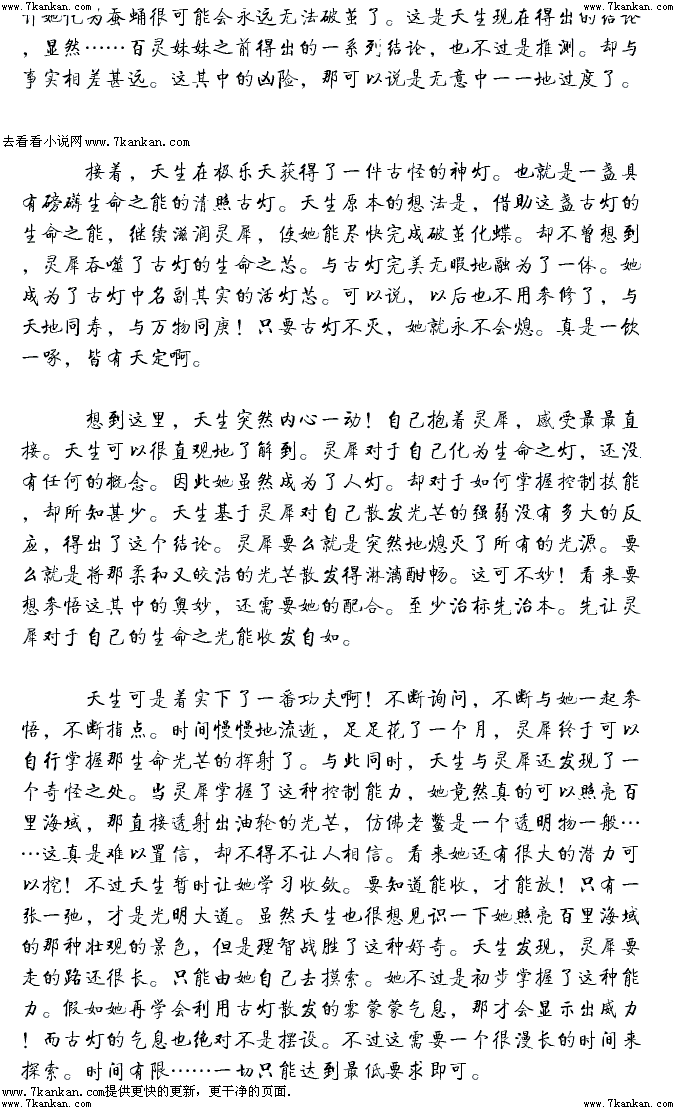 www.7kankan.com www.7kankan.com
她化为蚕蛹很可能会永远无法破茧了。这是天生现在得出的结论
，显然……百灵妹妹之前得出的一系列结论，也不过是推测。却与
事实相差甚远。这其中的凶险，那可以说是无意中一一地过度了。
去看看小说网www.7kankan.com
接着，天生在极乐天获得了一件古怪的神灯。也就是一盏具
有磅礴生命之能的清照古灯。天生原本的想法是，借助这盏古灯的
生命之能，继续滋润灵犀，使她能尽快完成破茧化蝶。却不曾想到
，灵犀吞噬了古灯的生命之芯。与古灯完美无暇地融为了一体。她
成为了古灯中名副其实的活灯芯。可以说，以后也不用参修了，与
天地同寿，与万物同庚！只要古灯不灭，她就永不会熄。真是一饮
一啄，皆有天定啊。
想到这里，天生突然内心一动！自己抱着灵犀，感受最最直
接。天生可以很直观地了解到。灵犀对于自己化为生命之灯，还没
有任何的概念。因此她虽然成为了人灯。却对于如何掌握控制技能
，却所知甚少。天生基于灵犀对自己散发光芒的强弱没有多大的反
应，得出了这个结论。灵犀要么就是突然地熄灭了所有的光源。要
么就是将那柔和又皎洁的光芒散发得淋漓酣畅。这可不妙！看来要
想参悟这其中的奥妙，还需要她的配合。至少治标先治本。先让灵
犀对于自己的生命之光能收发自如。
天生可是着实下了一番功夫啊！不断询问，不断与她一起参
悟，不断指点。时间慢慢地流逝，足足花了一个月，灵犀终于可以
自行掌握那生命光芒的挥射了。与此同时，天生与灵犀还发现了一
个奇怪之处。当灵犀掌握了这种控制能力，她竟然真的可以照亮百
里海域，那直接透射出油轮的光芒，仿佛老鳖是一个透明物一般…
…这真是难以置信，却不得不让人相信。看来她还有很大的潜力可
以挖！不过天生暂时让她学习收敛。要知道能收，才能放！只有一
张一弛，才是光明大道。虽然天生也很想见识一下她照亮百里海域
的那种壮观的景色，但是理智战胜了这种好奇。天生发现，灵犀要
走的路还很长。只能由她自己去摸索。她不过是初步掌握了这种能
力。假如她再学会利用古灯散发的雾蒙蒙气息，那才会显示出威力
！而古灯的气息也绝对不是摆设。不过这需要一个很漫长的时间来
探索。时间有限……一切只能达到最低要求即可。
www.7kankan.com提供更快的更新，更干净的页面.
www.7kankan.com www.7kankan.com